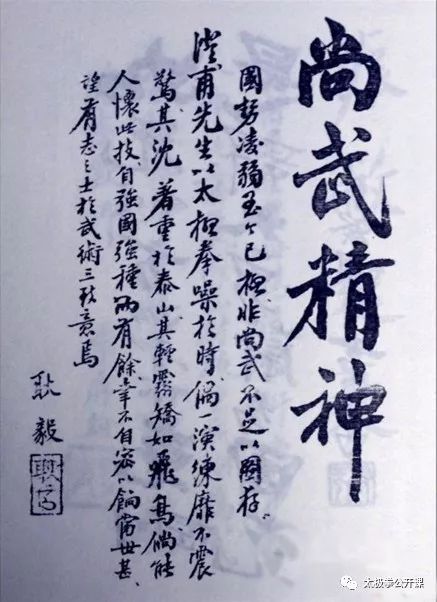 尚武精神
國勢凌弱至今已極非尚武不足以圖存。
澄甫先生以太極拳噪於時偶一演練靡不震
驚其沈著重於泰山其輕靈矯如飛鳥倘能
人懷此技自強國強種而有餘幸不自密以餉當世甚
望有志之士於武術三致意焉
耿毅
太极拳公开课